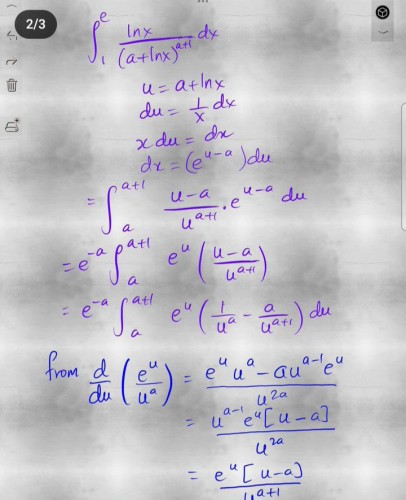 2/3
∫₁^e lnx/(a+lnx)^(a+1) dx
u = a+lnx
du = 1/x dx
x du = dx
dx = (e^(u-a))du
= ∫ₐ^(a+1) (u-a)/u^(a+1) . e^(u-a) du
= e^(-a) ∫ₐ^(a+1) e^u ((u-a)/u^(a+1))
= e^(-a) ∫ₐ^(a+1) e^u (1/u^a - a/u^(a+1)) du
from d/du (e^u/u^a) = (e^u u^a - au^(a-1) e^u)/u^(2a)
= u^(a-1) e^u [u-a]/u^(2a)
= e^u [u-a]/u^(a+1)